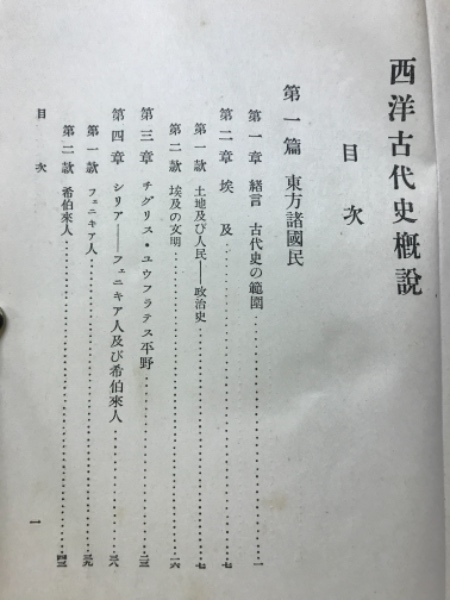 西洋古代史槪説
目次
第一篇 東方諸國民
第一章 緒言 古代史の範圍…………一
第二章 埃及…………七
第一款 土地及び人民――政治史…………七
第二款 埃及の文明…………一六
第三章 チグリス・ユウフラテス平野…………二三
第四章 シリア――フェニキア人及び希伯來人…………三八
第一款 フェニキア人…………三九
第二款 希伯來人…………四三
目次
一